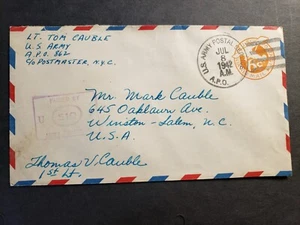 LT. TOM CAUBLE
U.S ARMY
A.P.O. 862
C/O POSTMASTER, N.Y.C.
U.S. ARMY POSTAL
JUL
8
1942
A.M.
A.P.O.
Mr. Mark Cauble
645 Oaklawn Ave.
Winston-Salem, N.C.
U.S.A.
Thomas V. Cauble
1st Lt.